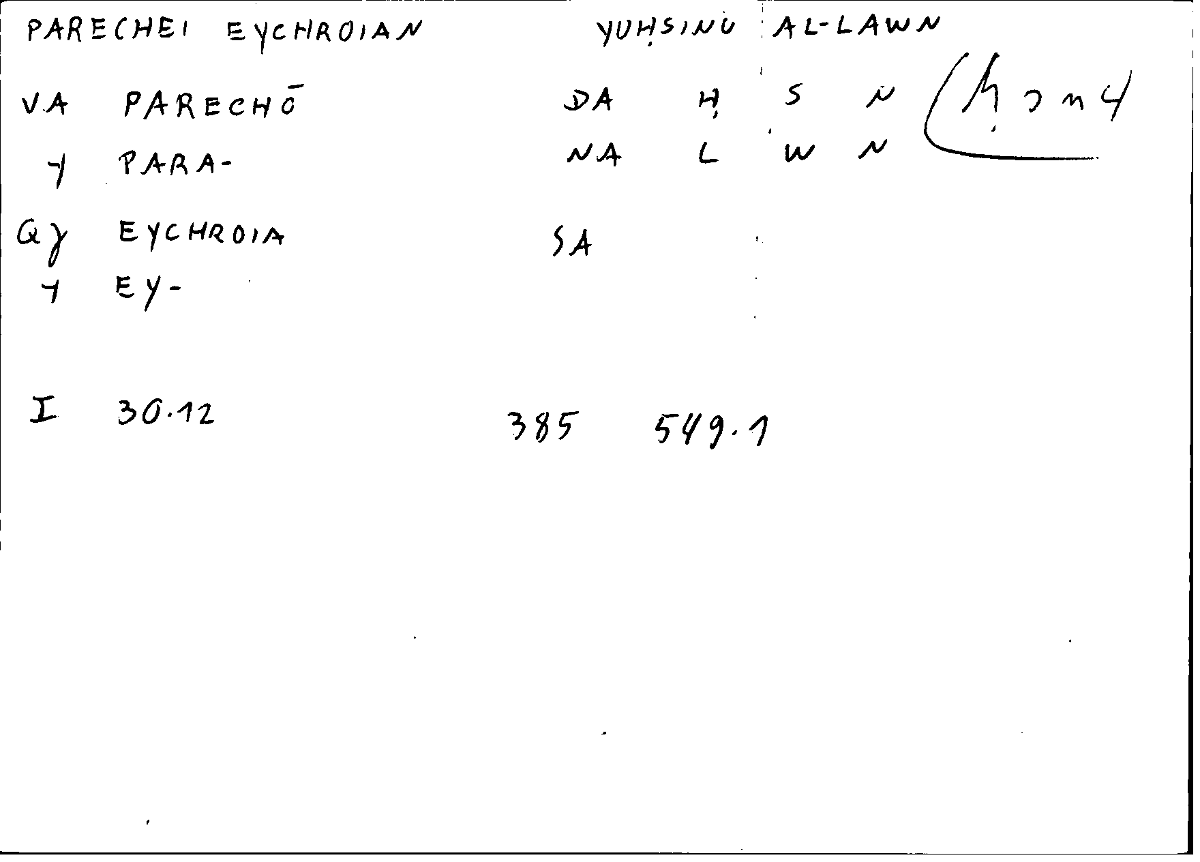 PARECHEI EYCHROIAN YUḤSINU AL-LAWN
VA PARECHŌ DA Ḥ S N (ḥsn4
Y PARA- NA L W N
QY EYCHROIA SA
Y EY-
I 30.12 385 549.1